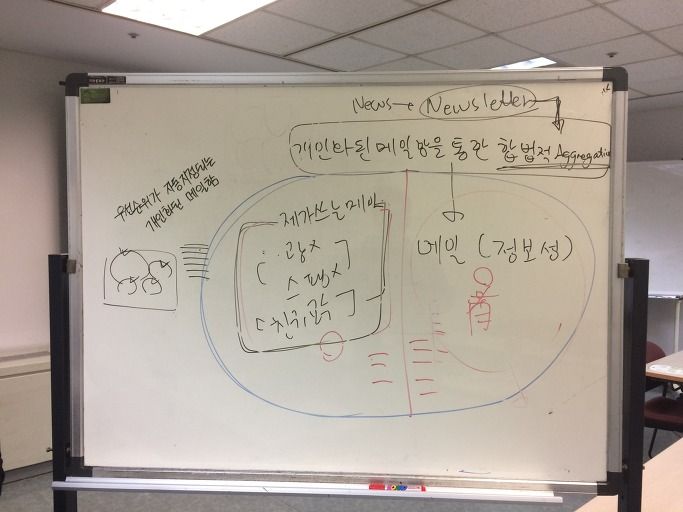 News → Newsletter
개인화된 메일함을 통한 합법적 Aggregation
우선순위가 자동지정되는
개인화된 메일함
제가쓰는메일
광x
스팸x
메일 (정보성)